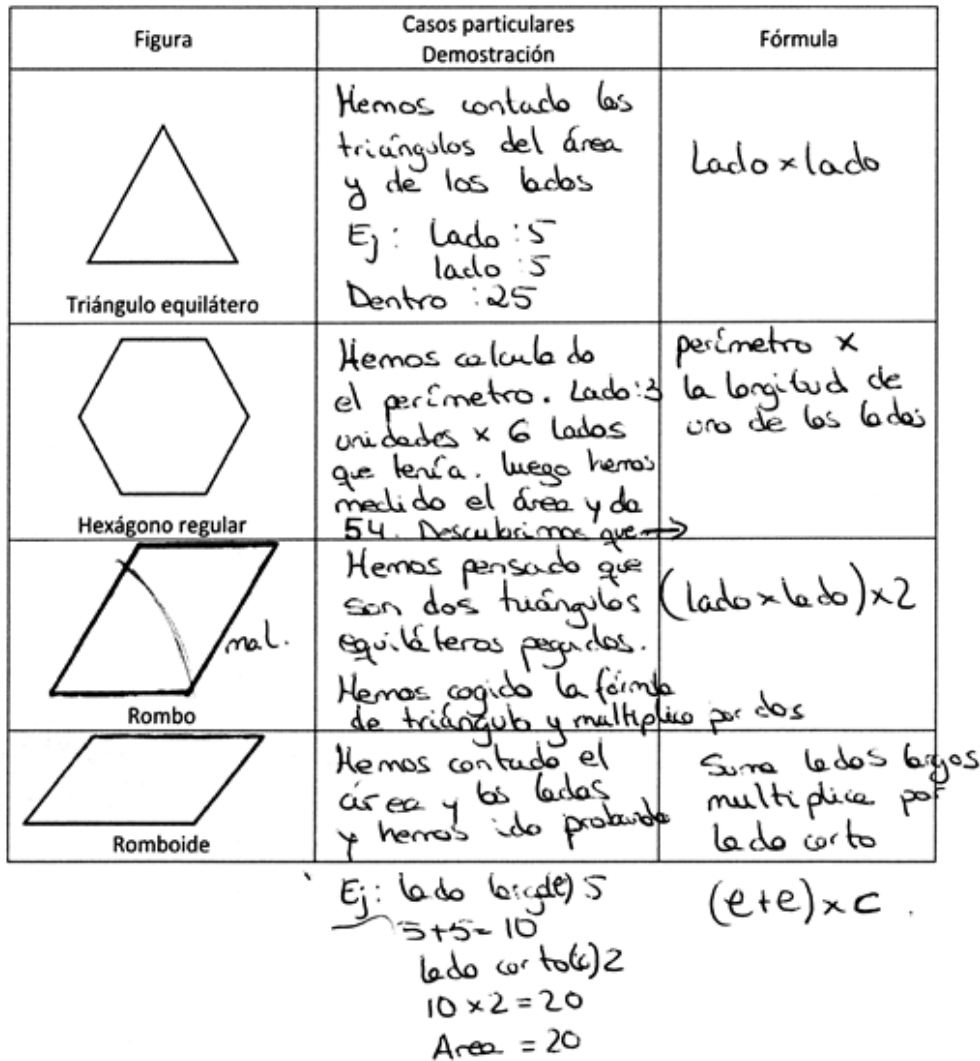 Figura
Casos particulares
Demostración
Fórmula
Triángulo equilátero
Hemos contado los
triángulos del área
y de los lados
Ej: Lado : 5
lado : 5
Dentro : 25
Lado x lado
Hexágono regular
Hemos calculado
el perímetro. Lado: 3
unidades x 6 lados
que tenía. luego hemos
medido el área y da
54. Descubrimos que →
perímetro x
la longitud de
uno de los lados
mal.
Rombo
Hemos pensado que
son dos triángulos
equiláteros pegados.
Hemos cogido la fórmula
de triángulo y multiplico por dos
(lado x lado) x 2
Romboide
Hemos contado el
área y los lados
y hemos ido probando
Ej: lado largo(l) 5
5+5= 10
lado corto(c) 2
10 x 2 = 20
Area = 20
Suma lados largos
multiplica por
lado corto
(l+l) x c .